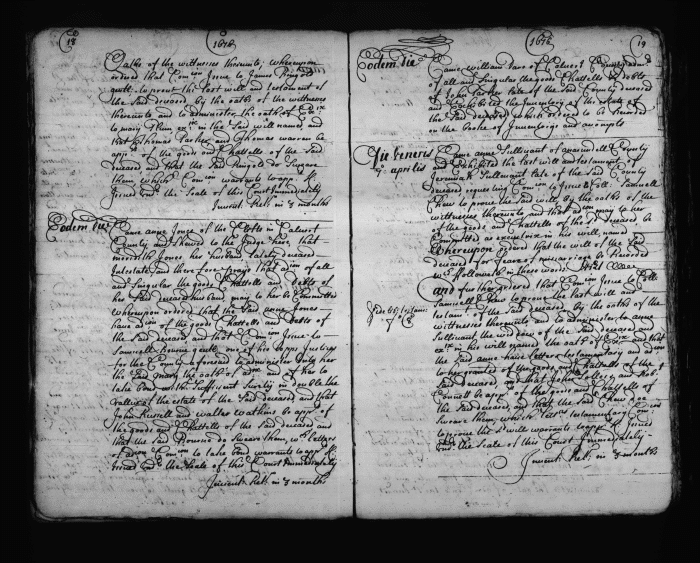 18
1678
Oaths of the witnesses thereunto; whereupon
ordered that Com̃ion Issue to James Ringold
gentl. to prove the last will and testament of
the said deceased by the oaths of the witnesses
thereunto and to administer the oath of Ex
to mary in the said will named, and
that Thomas Parker and Thomas warren be
app of the goods and Chattells of the said
deceased and that the said Ringold do Sweare
them which Com̃ion warrants to app
Issued und the Seale of this Court Immediately
Invent Ret. in 3 months
Eodem die
Came anne Jones of the Clifts in Calvert
County and shewed to the Judge here, that
Jones her husband lately deceased
Intestate and therefore prays that adm̃on of all
and Singular the goods Chattells and debts of
her said deceased husband may to her be Committed
whereupon ordered that the said anne Jones
have adm̃on of the goods Chattells and debts of
the said deceased and that Com̃ion Issue to
Samuell Bourne gentl. one of his Lpps Justices
for the County aforesaid to administer unto her
the said mary the oath of adm and of her to
take bond with Sufficient Surety in double the
Vallue of the estate of the said deceased and that
John Russell and walter watkins be app of
the goods and Chattells of the said deceased and
that the said Bourne do Sweare them, w letters
of adm̃on Com̃ion to take bond warrants to app
Issued und the Seale of this Court Immediately
Invent Ret. in 3 months
1678
19
Eodem die
Came william of Calvert County
of all and Singular the goods Chattells & debts
of John Parker late of the said County deceased
and Exhibited the Inventory of the estate of
the said deceased which ordered to be Recorded
in the Booke of Inventorys and accompts
Die Veneris
aprilis
Came anne Sullivant of anarundell County
and Exhibited the last will and testament of
Jeremiah Sullivant late of the said County
deceased requesting Com̃ion to Issue to Coll. Samuell
Chew to prove the said will, by the oaths of the
witnesses thereunto and that adm̃on may to her
of the goods and Chattells of the deceased be
Committed as executrix in his will named
Whereupon ordered that the will of the said
deceased for feare of miscarriage be Recorded
w followeth in these words
And further ordered that Com̃ion Issue to Coll.
Samuell Chew to prove the last will and
testam of the said deceased by the oaths of the
witnesses thereunto and to administer to anne
Sullivant, the widdow of the said deceased and
ex in his will named the oath of Ex and that
the said anne have letters testamentary and adm̃on
to her granted of the goods and Chattells of the
said deceased, and that John and
Connell be app of the goods and Chattells of
the said deceased, and that the said Chew doe
Sweare them, which letters testamentary Com̃ion
to prove the will warrants to app Issued
und the Seale of this Court Immediately
Invent Ret. in 3 months